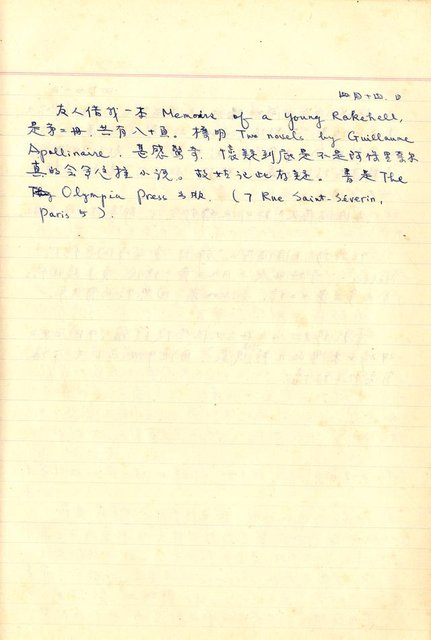 四月十四.日
友人借我一本 Memoirs of a Young Rakehell,
是第二冊.共有八十頁. 標明 Two novels by Guillaume
Apollinaire. 甚感驚奇. 懷疑到底是不是阿保里奈
真的會寫這種小說。故姑記此存疑. 書是 The
Olympia Press 出版. (7 Rue Saint-Séverin,
Paris 5).